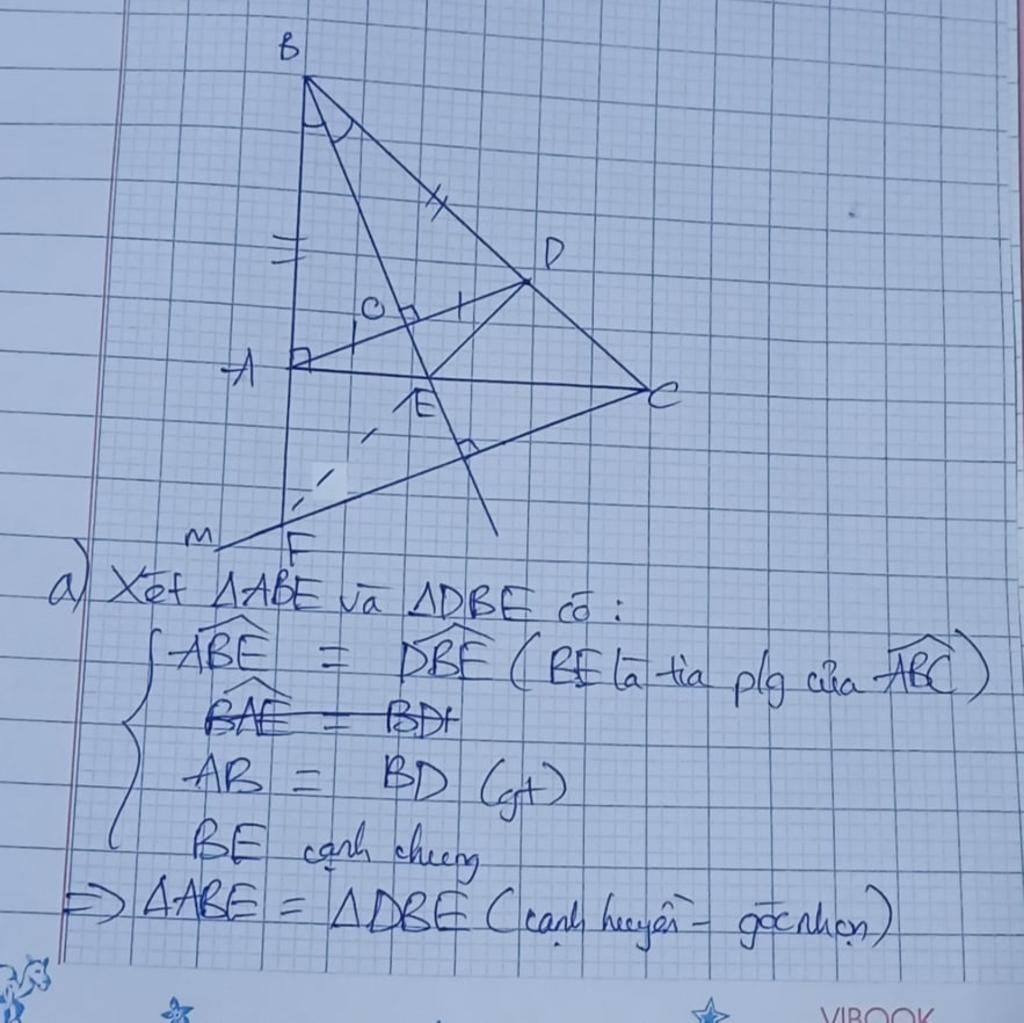 B
D
O
A
E
C
M
F
a) Xét ΔABE và ΔDBE có:
ABE = DBE (BE là tia plg của ABC)
BAE = BDt
AB = BD (gt)
BE cạnh chung
=> ΔABE = ΔDBE (cạnh huyền - góc nhọn)
VIBOOK